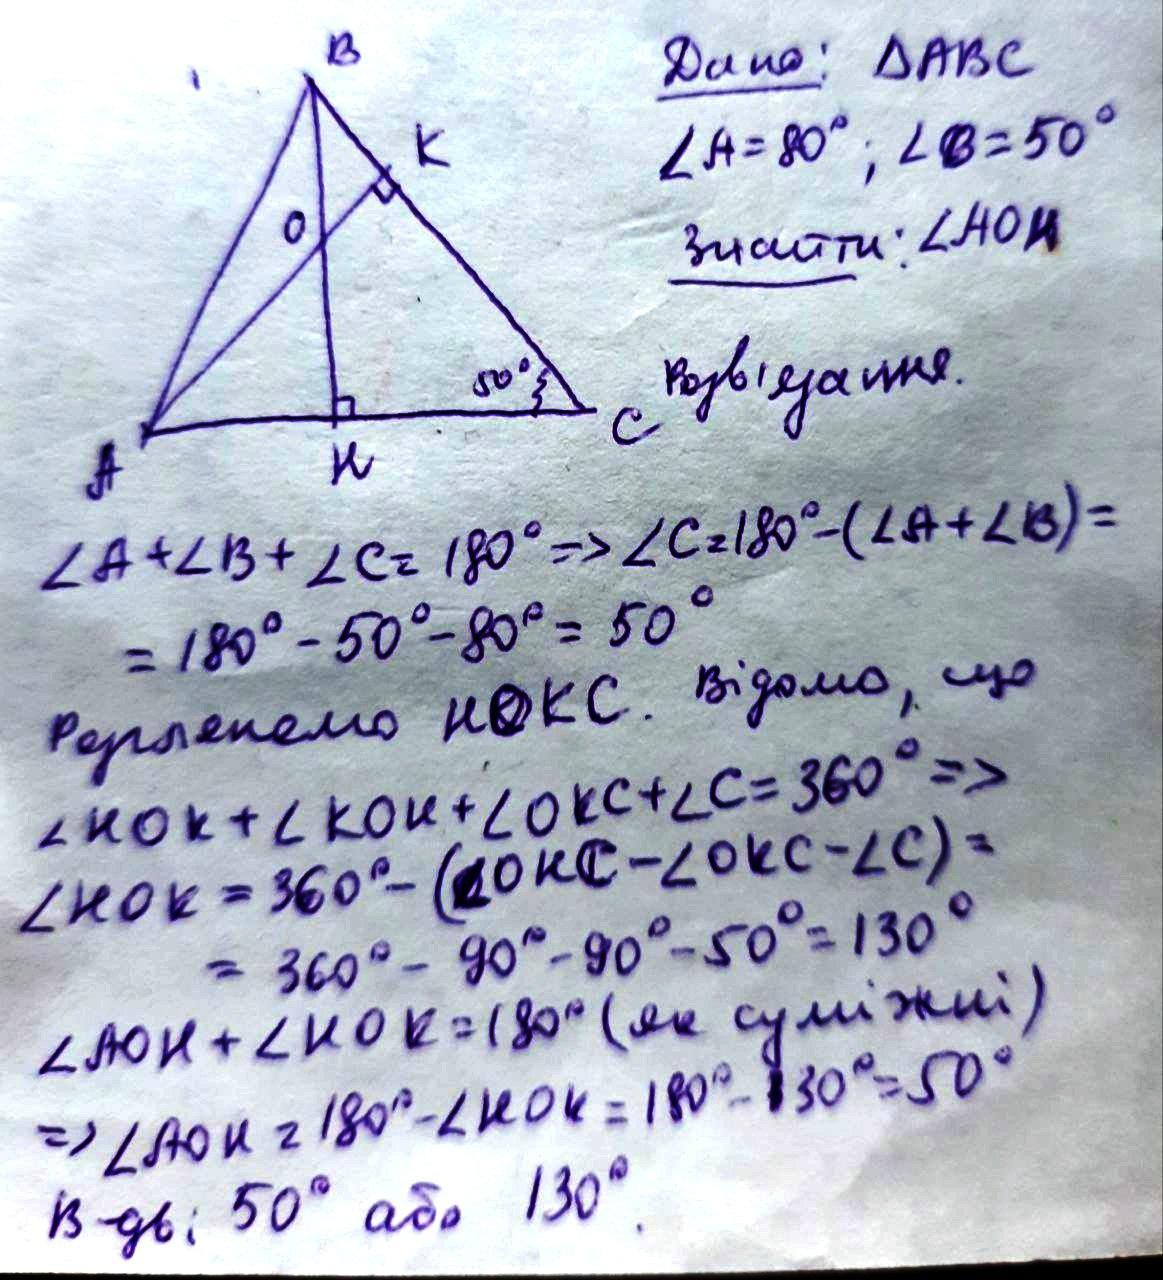 B
K
O
50°
A
H
C
Дано: ΔABC
∠A=80°; ∠B=50°
Знайти: ∠AOH
Розв'язання.
∠A+∠B+∠C=180°=>∠C=180°-(∠A+∠B)=
=180°-50°-80°=50°
Розглянемо HOKC. Відомо, що
∠HOK+∠KOH+∠OKC+∠C=360°=>
∠HOK=360°-(∠OHC-∠OKC-∠C)=
=360°-90°-90°-50°=130°
∠AOH+∠HOK=180°(як суміжні)
=>∠AOH=180°-∠HOK=180°-130°=50°
В-дь: 50° або 130°.